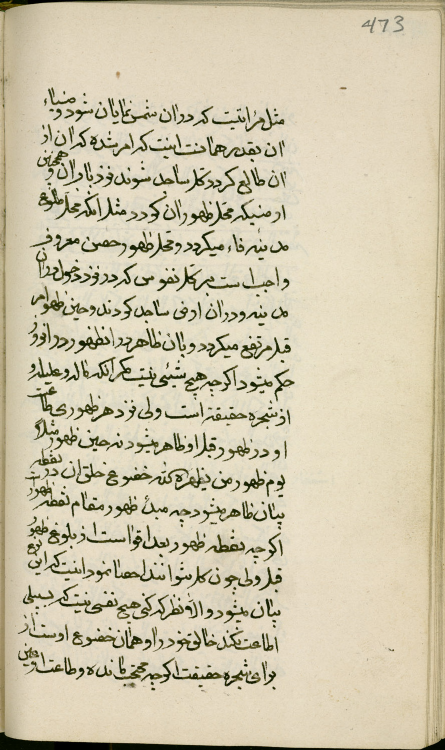 473
مثل مرآتیت که در ان شمس نمایان شود و ضیاء
ان بقدر همانست اینست که امر شده که ان از
ان طالع کردد کل ساجد شوند نزد باو و ان همچنین
ارضیکه محل ظهور ان کردد مثل انکه محل طلوع
مدینه فاء میکردد و محل ظهور حصن معروف
واجب است بر کل نفوس که در نزد دخول در ان
مدینه و در ان ارض ساجد کردند و حین ظهور امر
قبل مرتفع میکردد و بان ظاهر در ان ظهور در او نور
حکم میشود اکرچه هیچ شیئی نیست مکر انکه ماله و علیه او
از شجره حقیقة است ولی نزد هر ظهوری طاعت
او در ظهور قبل او ظاهر میشود نه حین ظهور مثلا
یوم ظهور من یظهره الله خضوع خلق ان در نقطه
بیان ظاهر میشود چه مبدء ظهور مقام نقطه ظهور است
اکرچه نقطه ظهور بعد اقوا است از بلوغ ظهور
قبل ولی چون کل نتوانند احصا نمود اینست که این نوع
بیان میشود والا نظر که کنی هیچ نفسی نیست که بسبیلی
اطاعت نکند خالق خود را و همان خضوع اوست از
برای شجره حقیقت اکرچه محتجب مانده و طاعت او حین